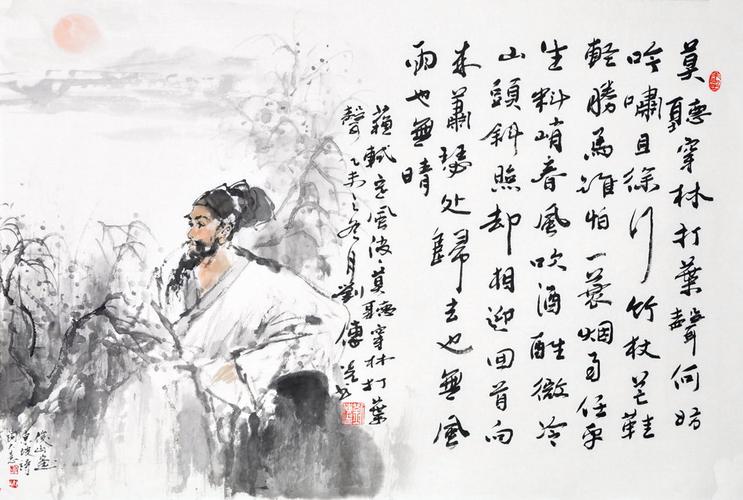 莫聽穿林打葉聲何妨
吟嘯且徐行竹杖芒鞋
輕勝馬誰怕一蓑烟雨任平
生料峭春風吹酒醒微冷
山頭斜照却相迎回首向
来蕭瑟处歸去也無風
雨也無晴
蘇軾定風波莫聽穿林打葉
聲乙未之冬月劉傳书
俊山畫
東坡詩